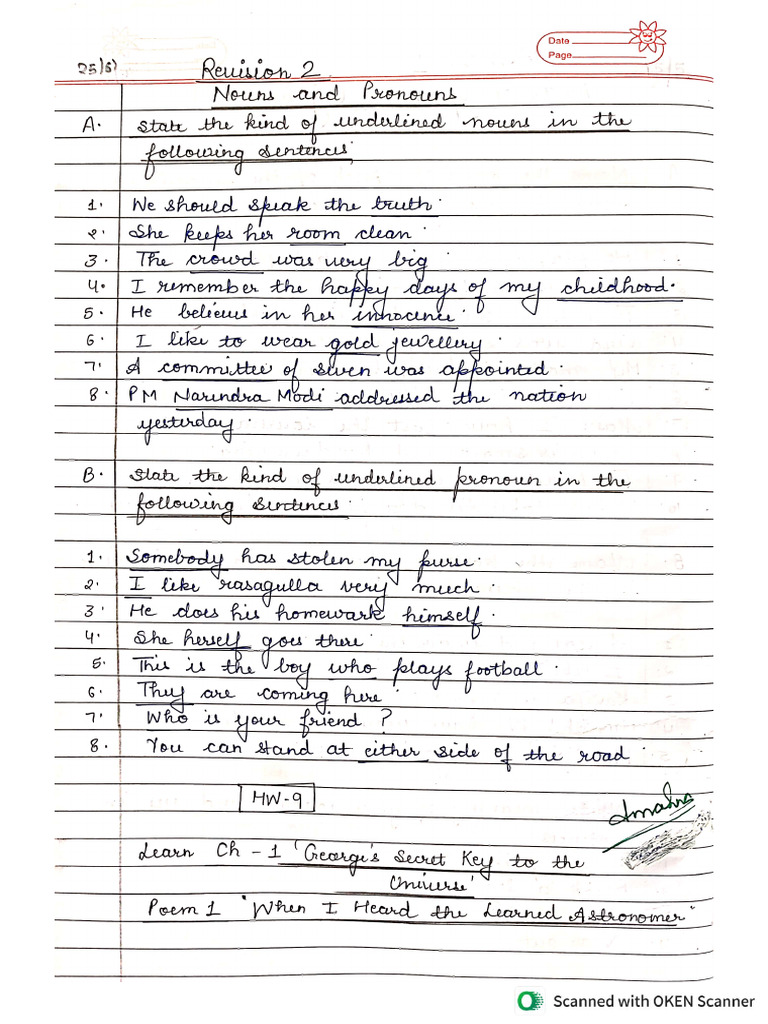 Date
Page
25/6)
Revision 2
Nouns and Pronouns
A. State the kind of underlined nouns in the
following sentences.
1. We should speak the truth.
2. She keeps her room clean.
3. The crowd was very big
4. I remember the happy days of my childhood.
5. He believes in her innocence.
6. I like to wear gold jewellery.
7. A committee of seven was appointed.
8. PM Narendra Modi addressed the nation
yesterday.
B. State the kind of underlined pronoun in the
following sentences.
1. Somebody has stolen my purse.
2. I like rasagulla very much.
3. He does his homewark himself.
4. She herself goes there.
5. This is the boy who plays football.
6. They are coming here.
7. Who is your friend?
8. You can stand at either side of the road.
HW-9
Learn Ch - 1 'George's Secret Key to the
Universe'
Poem 1 "When I Heard the Learned Astronomer"
Scanned with OKEN Scanner